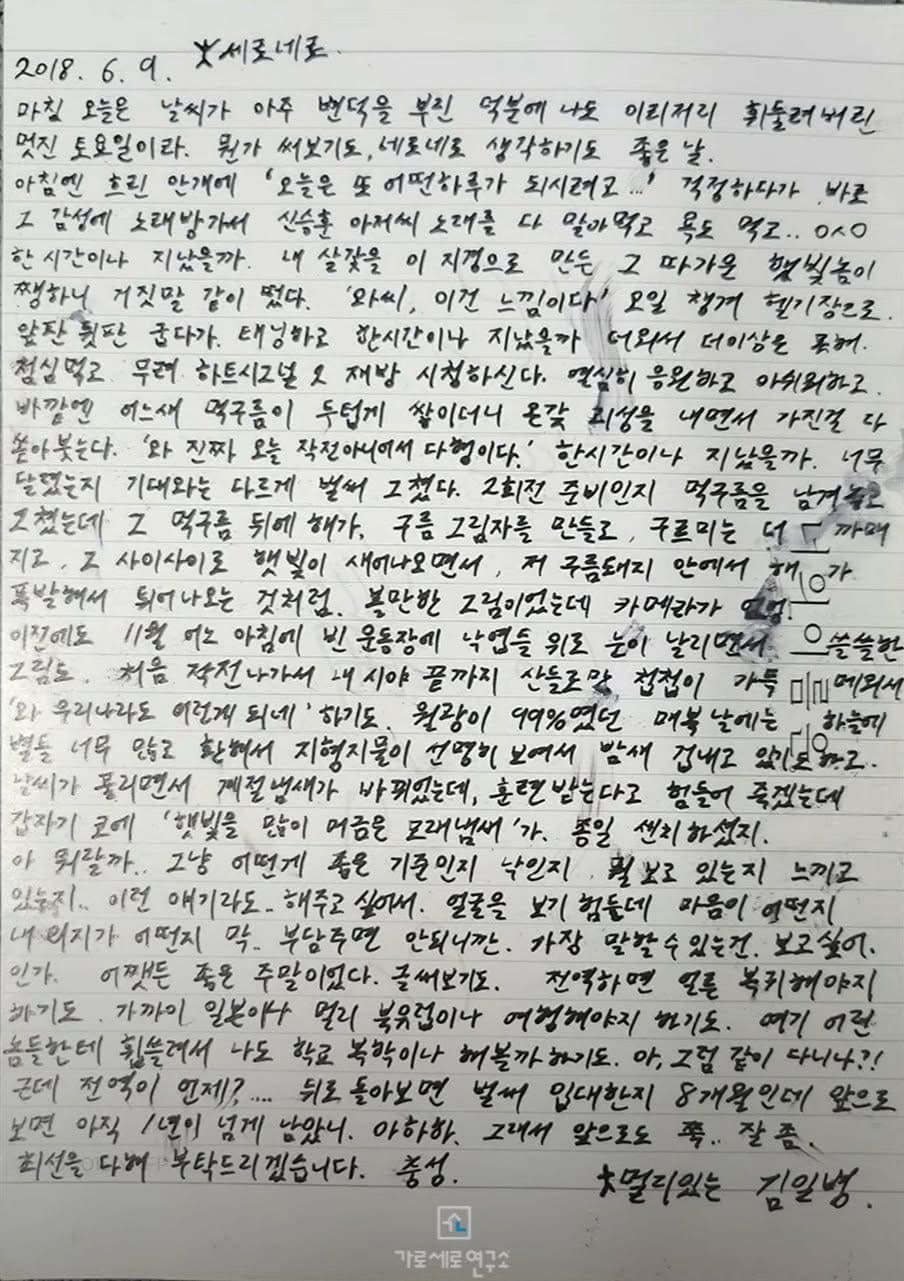 2018. 6. 9. 세로네로.
마침 오늘은 날씨가 아주 변덕을 부린 덕분에 나도 이리저리 휘둘려버린
멋진 토요일이라. 뭔가 써보기도, 네로네로 생각하기도 좋은 날.
아침엔 흐린 안개에 '오늘은 또 어떤하루가 되시려고...' 걱정하다가 바로
그 감성에 노래방가서 신승훈 아저씨 노래를 다 말아먹고 욕도 먹고.. ㅇㅅㅇ
한시간이나 지났을까. 내 살갗을 이 지경으로 만든 그 따가운 햇빛놈이
쨍하니 거짓말 같이 떴다. '와씨, 이건 느낌이다' 오일 챙겨 헬기장으로.
앞판 뒷판 굽다가. 태닝하고 한시간이나 지났을까 더워서 더이상은 못해.
점심먹고 무려 하트시그널 2 재방 시청하신다. 열심히 응원하고 아쉬워하고.
바깥엔 어느새 먹구름이 두텁게 쌓이더니 온갖 괴성을 내면서 가진걸 다
쏟아붓는다. '와 진짜 오늘 작전아니어서 다행이다.' 한시간이나 지났을까. 너무
달렸는지 기대와는 다르게 벌써 그쳤다. 2회전 준비인지 먹구름을 남겨놓고
그쳤는데 그 먹구름 뒤에 해가, 구름 그림자를 만들고, 구르미는 더 까매
지고, 그 사이사이로 햇빛이 새어나오면서, 저 구름돼지 안에서 해가
폭발해서 튀어나오는 것처럼. 볼만한 그림이었는데 카메라가
이전에도 11월 어느 아침에 빈 운동장에 낙엽들 위로 눈이 날리면서 쓸쓸한
그림도. 처음 작전나가서 내 시야 끝까지 산들로만 첩첩이 가득 메워서
'와 우리나라도 이렇게 되네' 하기도. 월광이 99%였던 매복날에는 하늘에
별들 너무 많고 환해서 지형지물이 선명히 보여서 밤새 겁내고 있기도 하고..
날씨가 풀리면서 계절냄새가 바뀌었는데, 훈련받는다고 힘들어 죽겠는데
갑자기 코에 '햇빛을 많이 머금은 모래냄새'가. 종일 센치하셨지.
아 뭐랄까.. 그냥 어떤게 좋은 기준인지 낙인지 뭘 보고 있는지 느끼고
있는지.. 이런 얘기라도.. 해주고 싶어서. 얼굴을 보기 힘든데 마음이 어떤지
내 의지가 어떤지 막.. 부담주면 안되니깐. 가장 말할수 있는건. 보고싶어.
인가. 어쨋든 좋은 주말이었다. 글써보기도. 전역하면 얼른 복귀해야지
하기도. 가까이 일본이나 멀리 북유럽이나 여행해야지 하기도. 여기 어린
놈들한테 휩쓸려서 나도 학교 복학이나 해볼까하기도. 아, 그럼 같이 다니나?!
근데 전역이 언제?.... 뒤로 돌아보면 벌써 입대한지 8개월인데 앞으로
보면 아직 1년이 넘게 남았니. 아하하. 그래서 앞으로도 쭉.. 잘 좀.
최선을 다해 부탁드리겠습니다. 충성.
멀리있는 김일병.
가로세로연구소